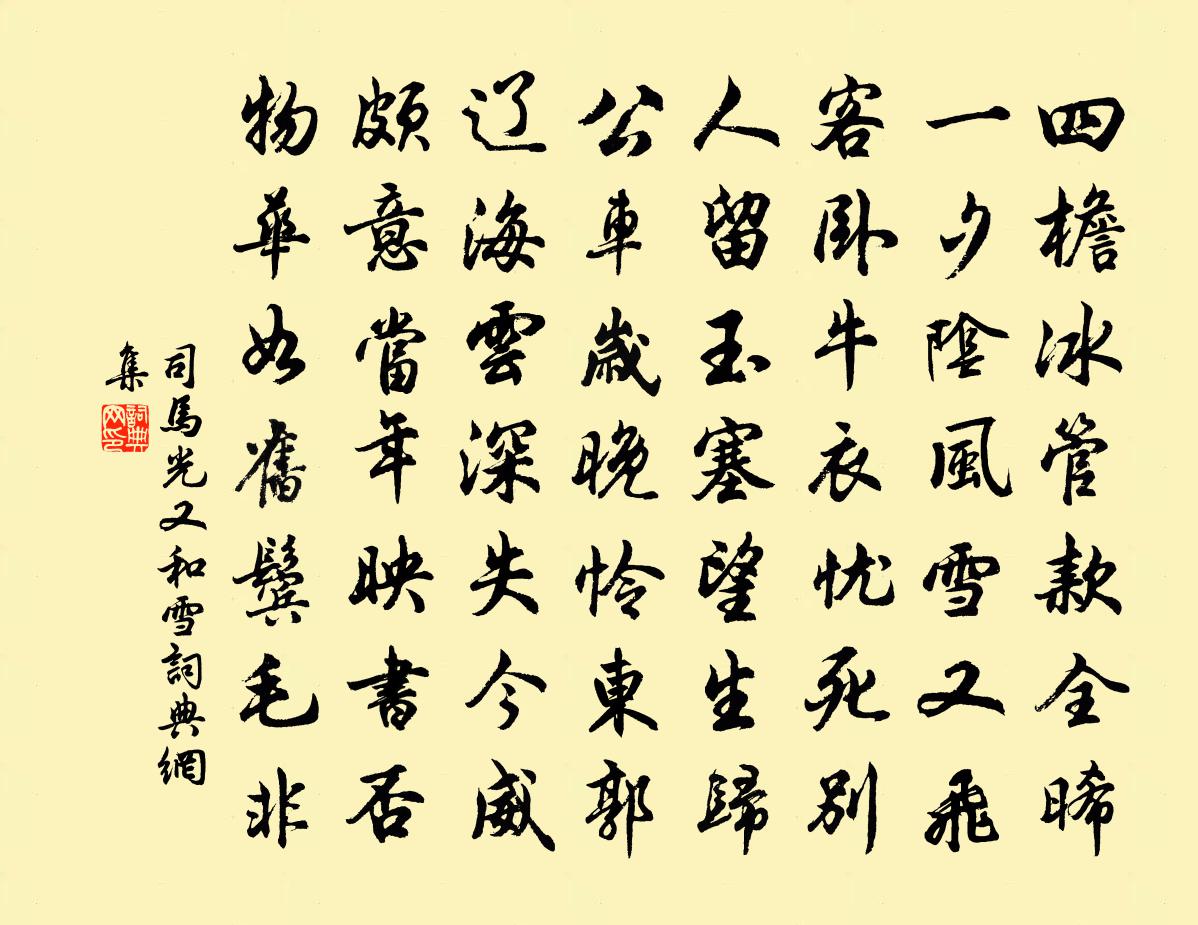 四檐冰管款全晞
一夕陰風雪又飛
客卧牛衣忧死别
人留玉塞望生歸
公車歲晚怜東郭
辽海雲深失今威
頗意當年映書否
物華如舊鬓毛非
司馬光又和雪詞典網
集
詞典网印